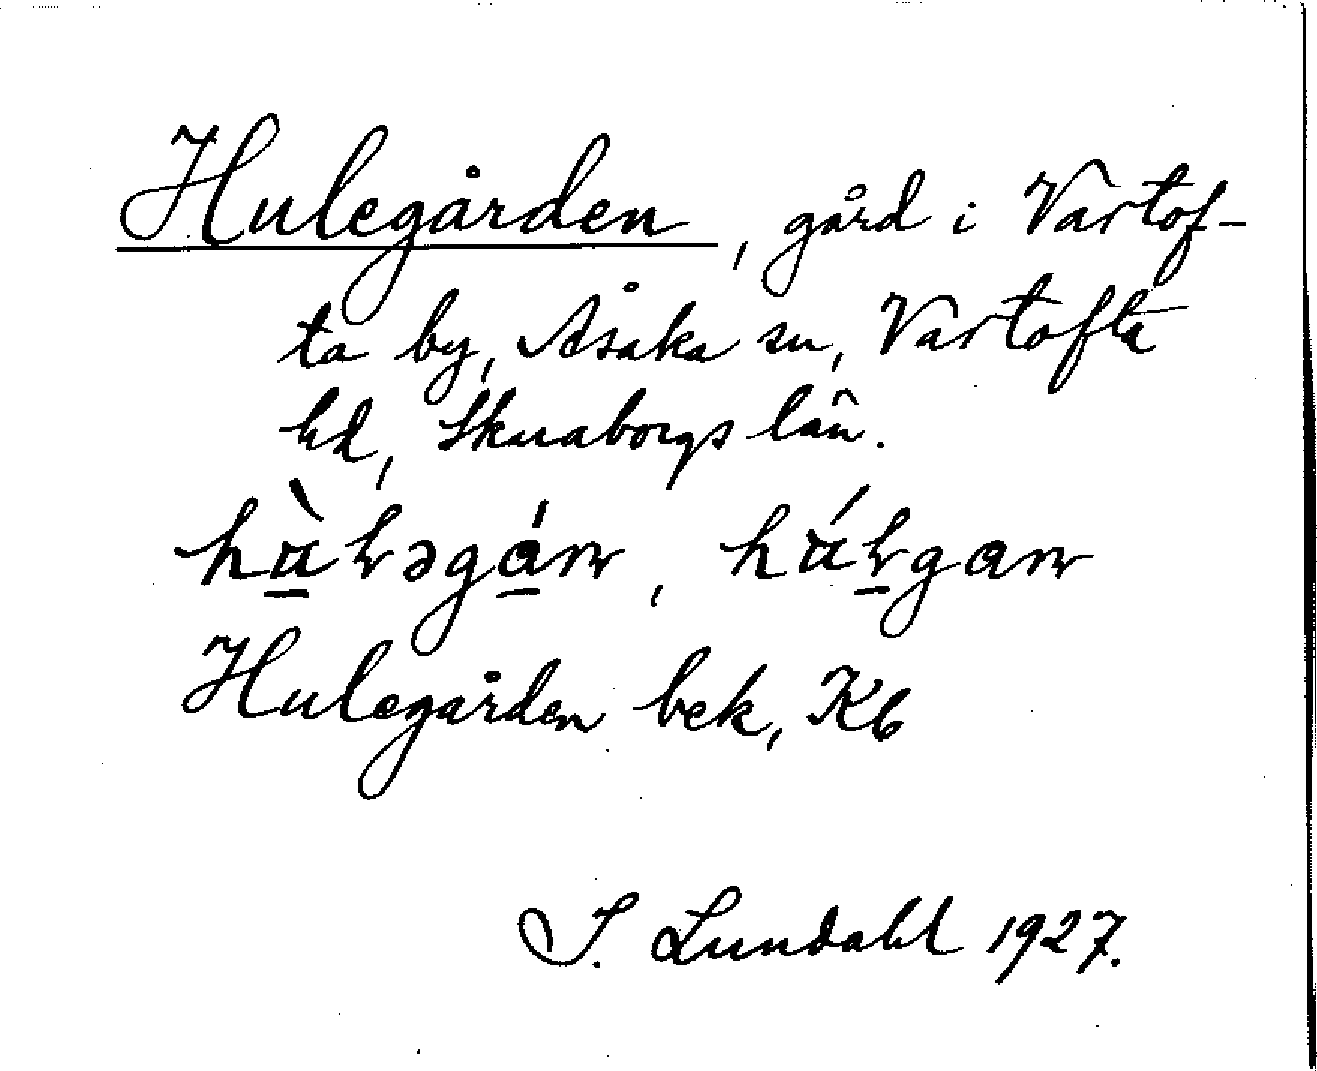 Hulegården, gård i Vartof-
ta by, Åsaka sn, Vartofta
hd, Skaraborgs län.
hɯ̀ɫəgán, hɯ́ɫgan
Hulegården bek, Kb
I. Lundahl 1927.